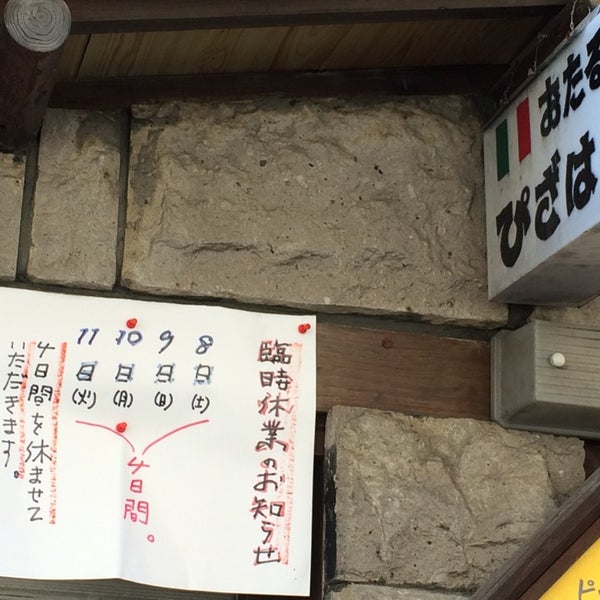 臨時休業のお知らせ
8日(土)
9日(日)
10日(月)
11日(火)
4日間。
4日間を休ませて
いただきます。
おたる
ぴざは
ピ